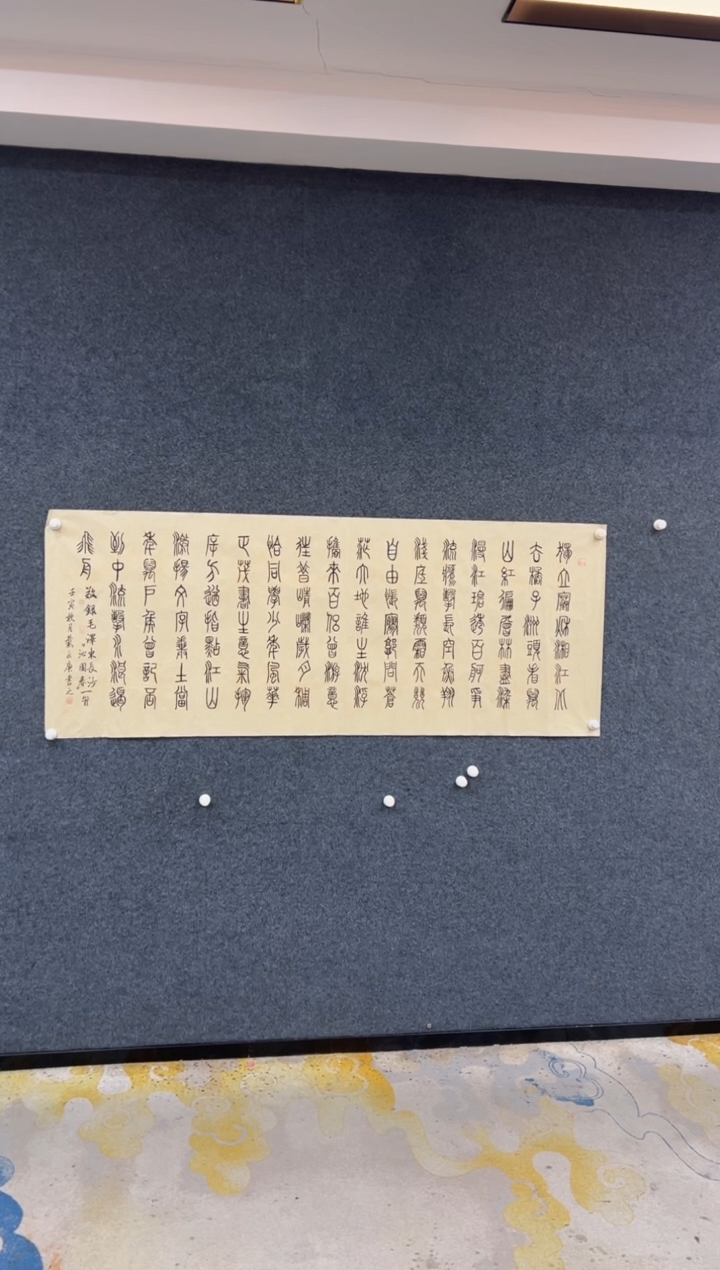 獨立寒秋湘江北
去橘子洲頭看萬
山紅遍層林盡染
漫江碧透百舸爭
流鷹擊長空魚翔
淺底萬類霜天競
自由悵寥廓問蒼
茫大地誰主沉浮
攜來百侶曾游憶
往昔崢嶸歲月稠
恰同學少年風華
正茂書生意氣揮
斥方遒指點江山
激揚文字糞土當
年萬戶侯曾記否
到中流擊水浪遏
飛舟
敬錄毛澤東長沙一首
沁園春
壬寅秋月戴書之